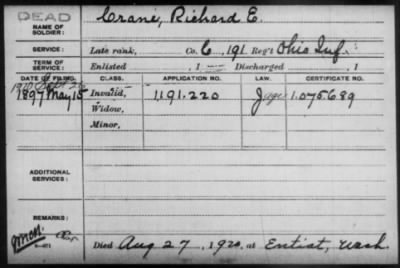 DEAD
NAME OF SOLDIER:
Crane, Richard E.
SERVICE:
Late rank, Co. C, 191 Reg't Ohio Inf.
TERM OF SERVICE:
Enlisted , 1 Discharged , 1
DATE OF FILING. CLASS. APPLICATION NO. LAW. CERTIFICATE NO.
1897 May 15 Invalid, 1191.220 1.075.689
Widow,
Minor,
ADDITIONAL SERVICES:
REMARKS:
Died Aug 27, 1920, at Entiat, Wash